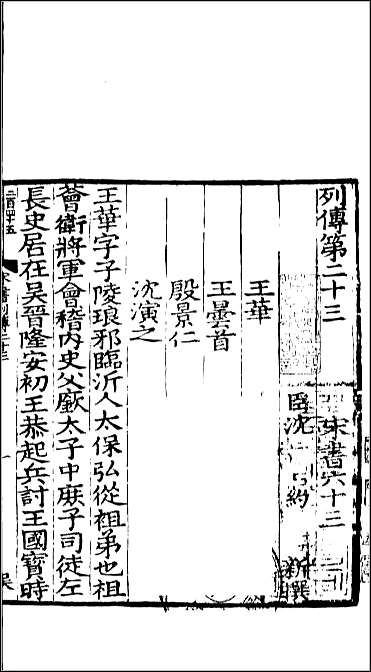 列傳第二十三　宋書六十三
臣沈約　新撰
王華
王曇首
殷景仁
沈演之
王華字子陵琅邪臨沂人太保弘從祖弟也祖
薈衛將軍會稽內史父廞太子中庶子司徒左
長史居在吳晉隆安初王恭起兵討王國寶時